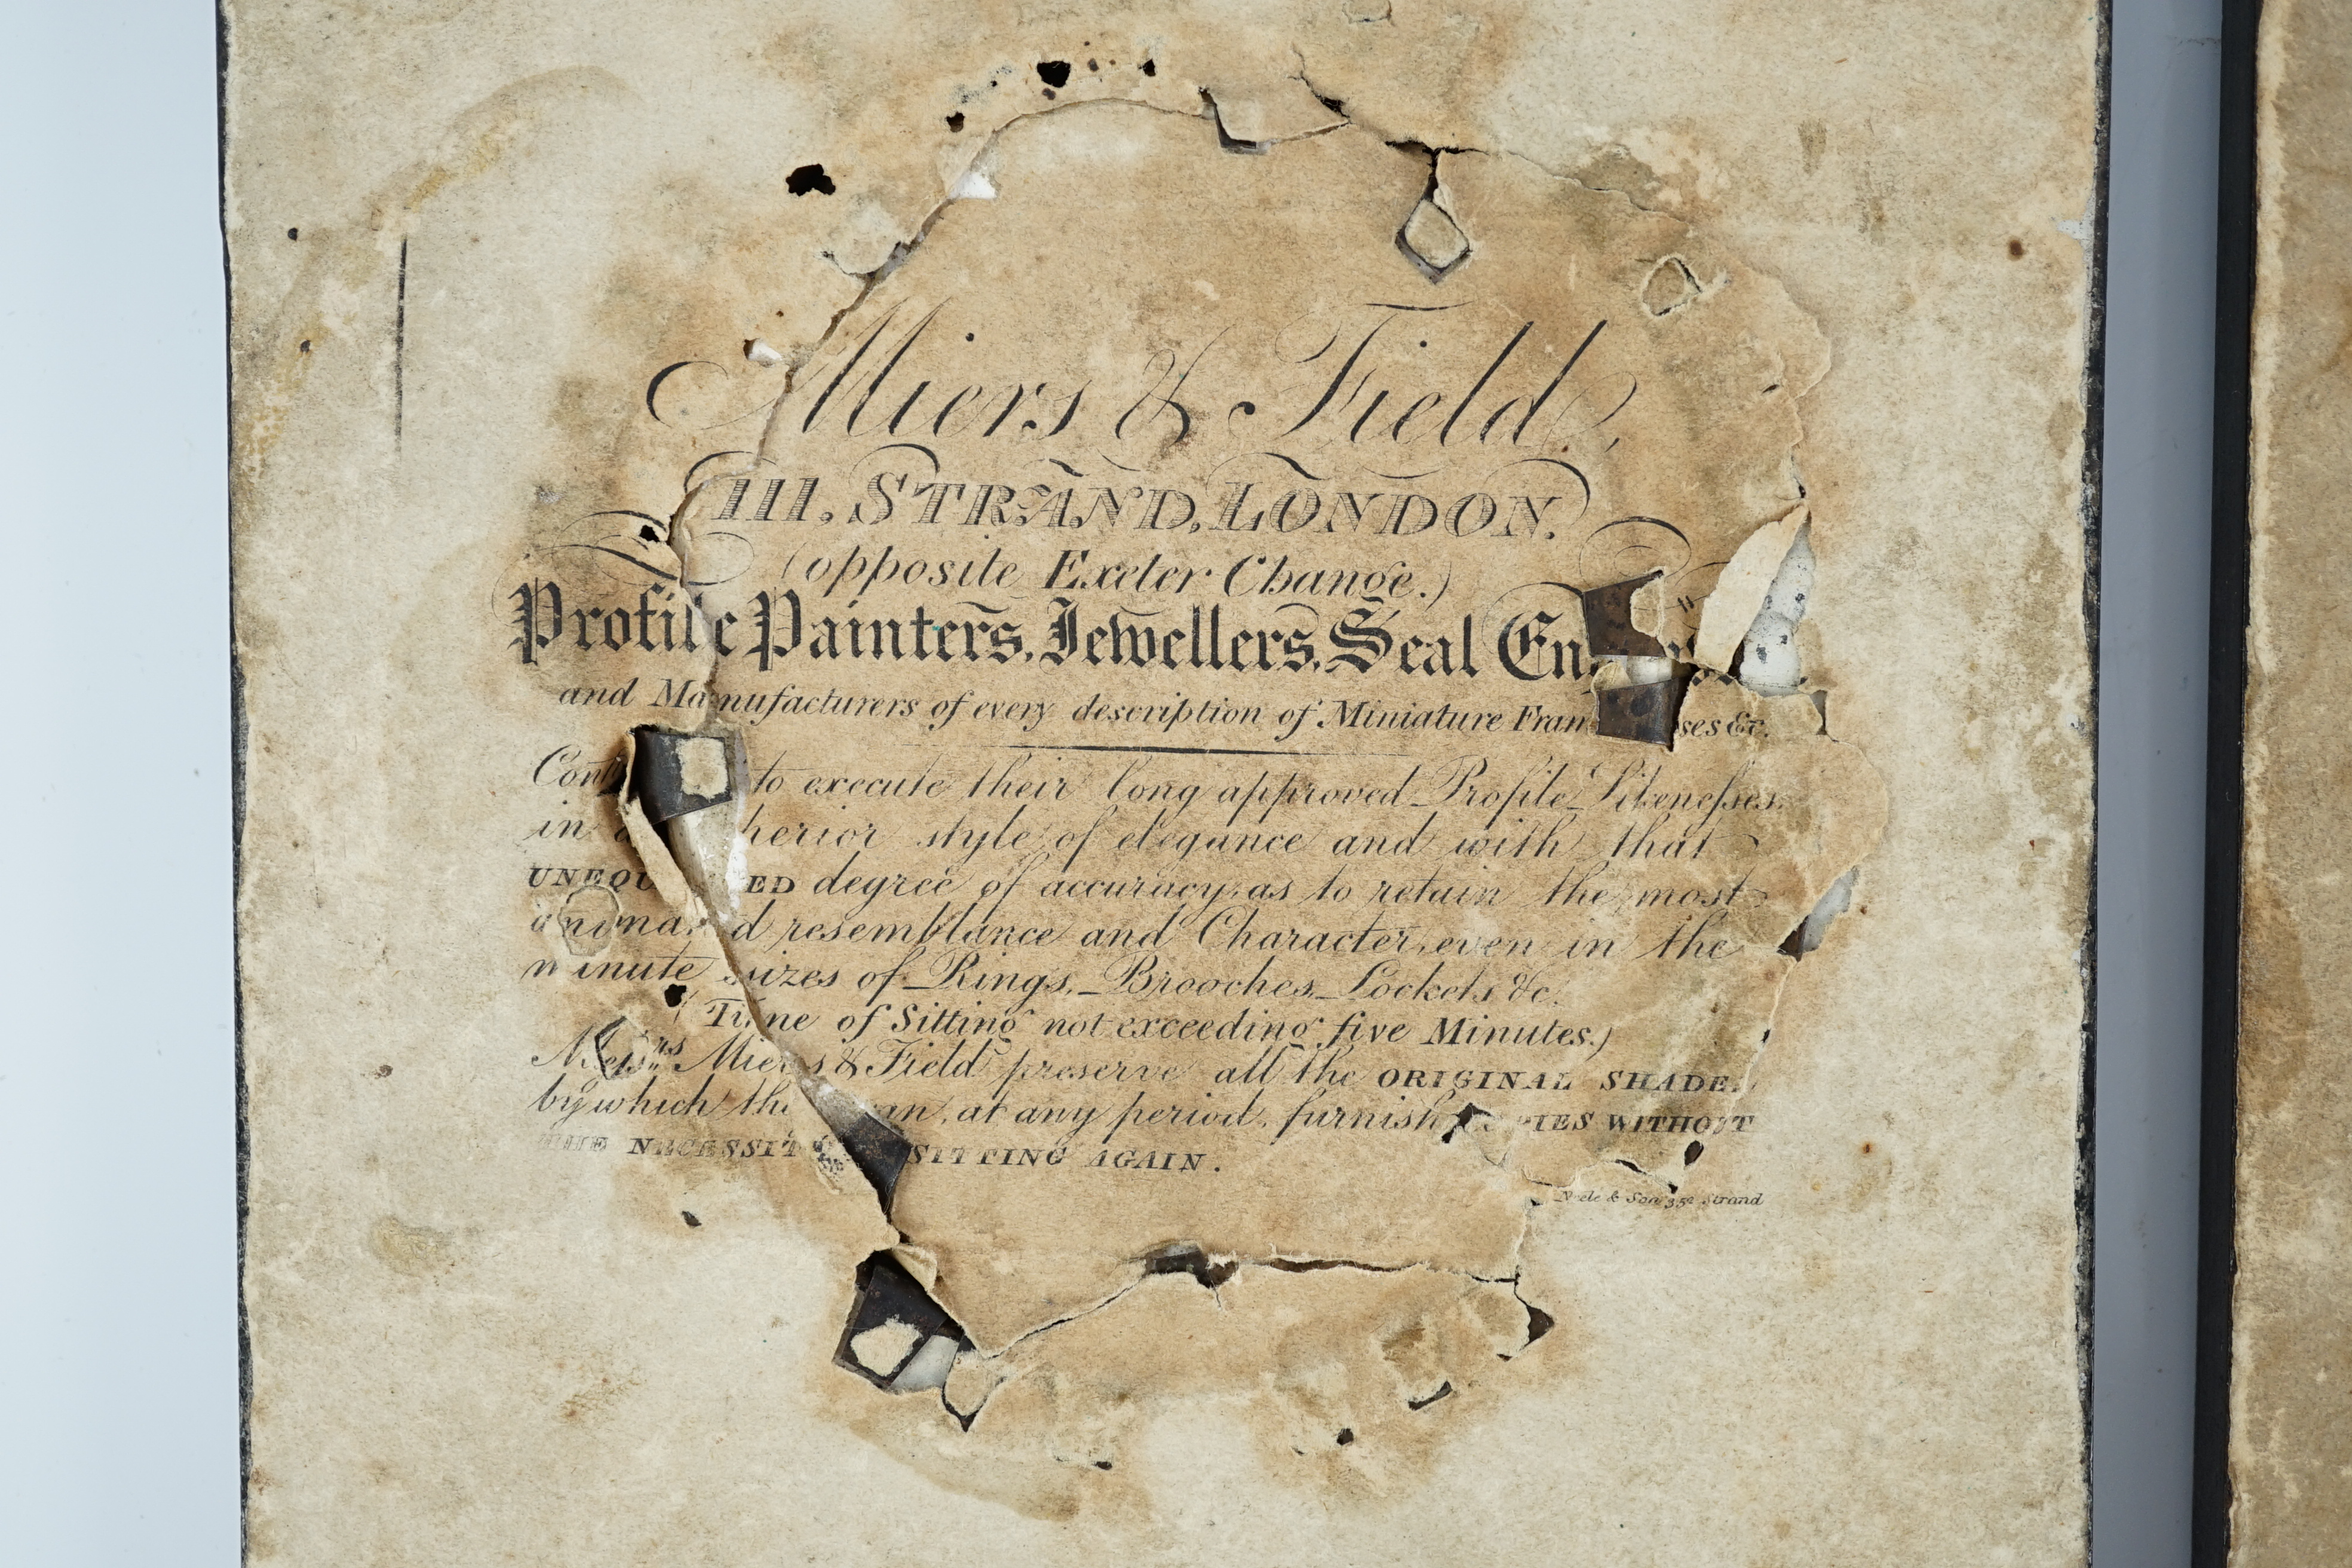 Miers & Field,
111, STRAND, LONDON.
(opposite Exeter Change.)
Profile Painters, Jewellers, Seal
and Manufacturers of every description of Miniature &c.
to execute their long approved Profile Likenesses,
in style of elegance and with that
degree of accuracy, as to retain the most
resemblance and Character, even in the
minute sizes of Rings, Brooches, Lockets &c.
(Time of Sitting not exceeding five Minutes.)
Messrs Miers & Field preserve all the ORIGINAL
by which at any period, furnish WITHOUT
SITTING AGAIN.
& Son 352 Strand